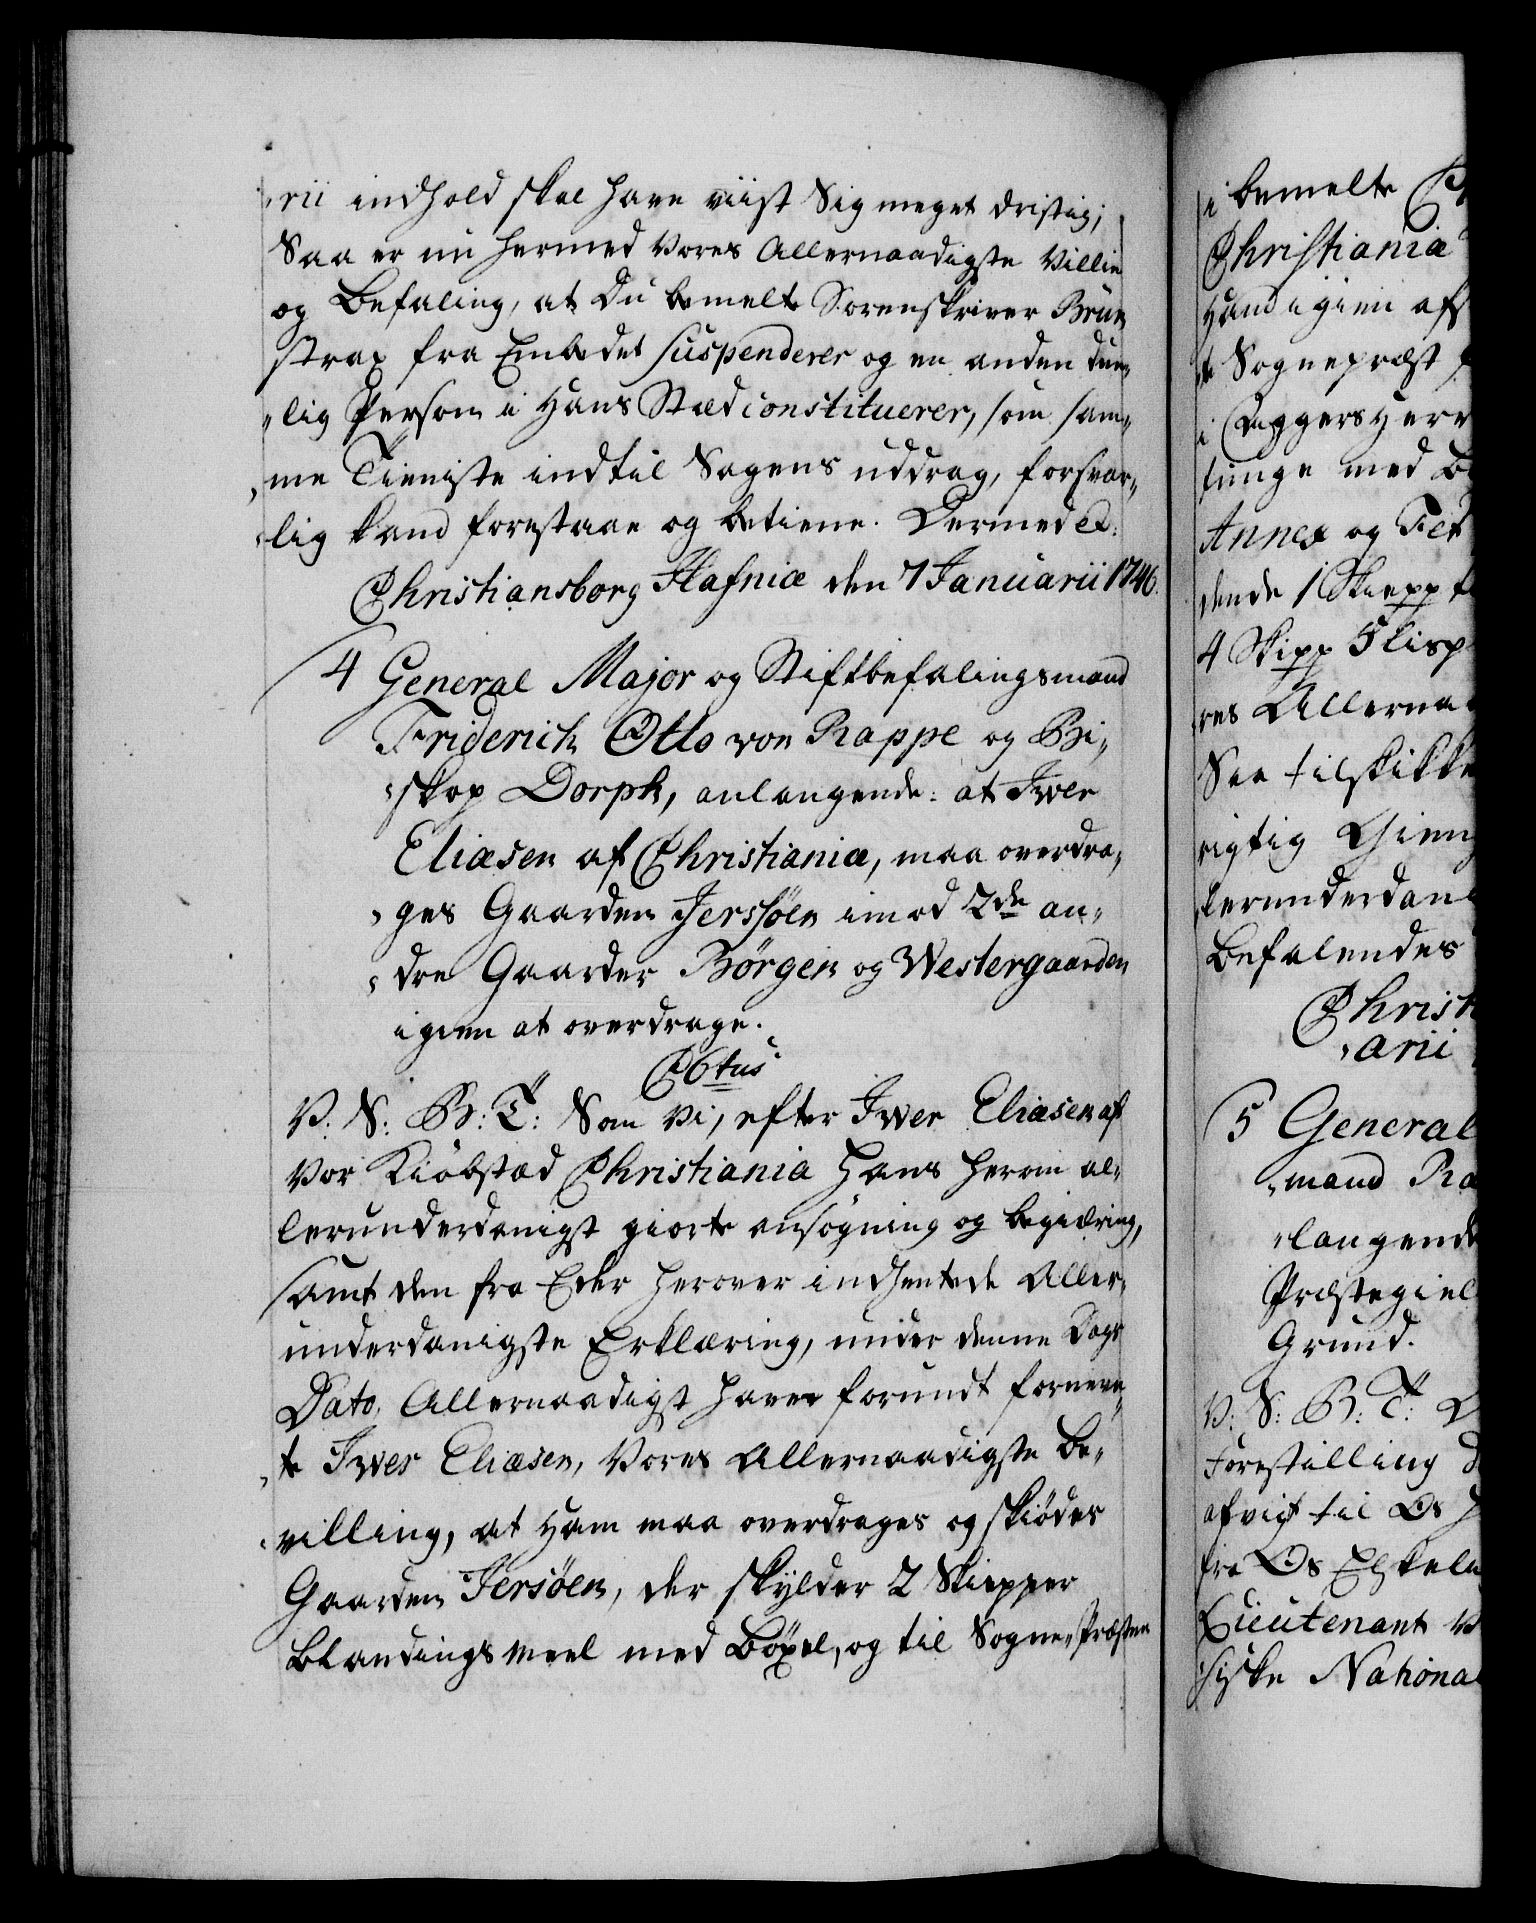 rii indhold skal have viist Sig meget dristig;
Saa er nu hermed Vores Allernaadigste Villie
og Befaling, at Du bemelte Sorenskriver Brun
strax fra Embedet suspenderer og en anden due„
„lig Person i Hans Stæd constituerer, som sam„
„me Tieniste indtil Sagens uddrag, forsvar„
„lig kand forestaae og betiene. Dermed et:
Christiansborg Hafniæ den 7 Januarii 1746.
4 General Major og Stiftbefalingsmand
Friderich Otto von Rappe og Bi„
„skop Dorph, anlangende: at Iwer
Eliæsen af Christiania, maa overdra„
„ges Gaarden Jerssøen imod 2de an„
„dre Gaarder Børgen og Westergaarden
igien at overdrage.
C 6tus
V. S: B: T: Som Vi, efter Iwer Eliæsen af
Vor Kiøbstæd Christiania Hans herom al„
lerunderdanigst giorte ansøgning og begiæring,
samt den fra Eder herover indhentede Aller„
underdanigste Erklæring, under denne Dags
Dato, Allernaadigst haver forundt fornevn„
„te Iwer Eliæsen, Vores Allernaadigste Be„
„villing, at Ham maa overdrages og skiødes
Gaarden Jersøen, der skylder 2 Skiepper
Blandings Meel med Bøxel, og til Sogne„Præsten
i bemelte
Christiania
Hand igien af
te Sogneprest
i Aggers Herr
tinge med B
Annex og
dende 1 Skiepp
4 Skipp 5 Lisp
res Allerna
Saa tilskikke
rigtig Gien
lerunderdan
Befalendes
Christ
„arii
5 General
„mand Ra
„langend
Præstegiel
Grund.
V: S: B: T:
Forestilling
afvigt til Os
fra Os Elskel
Lieutenant
siske National